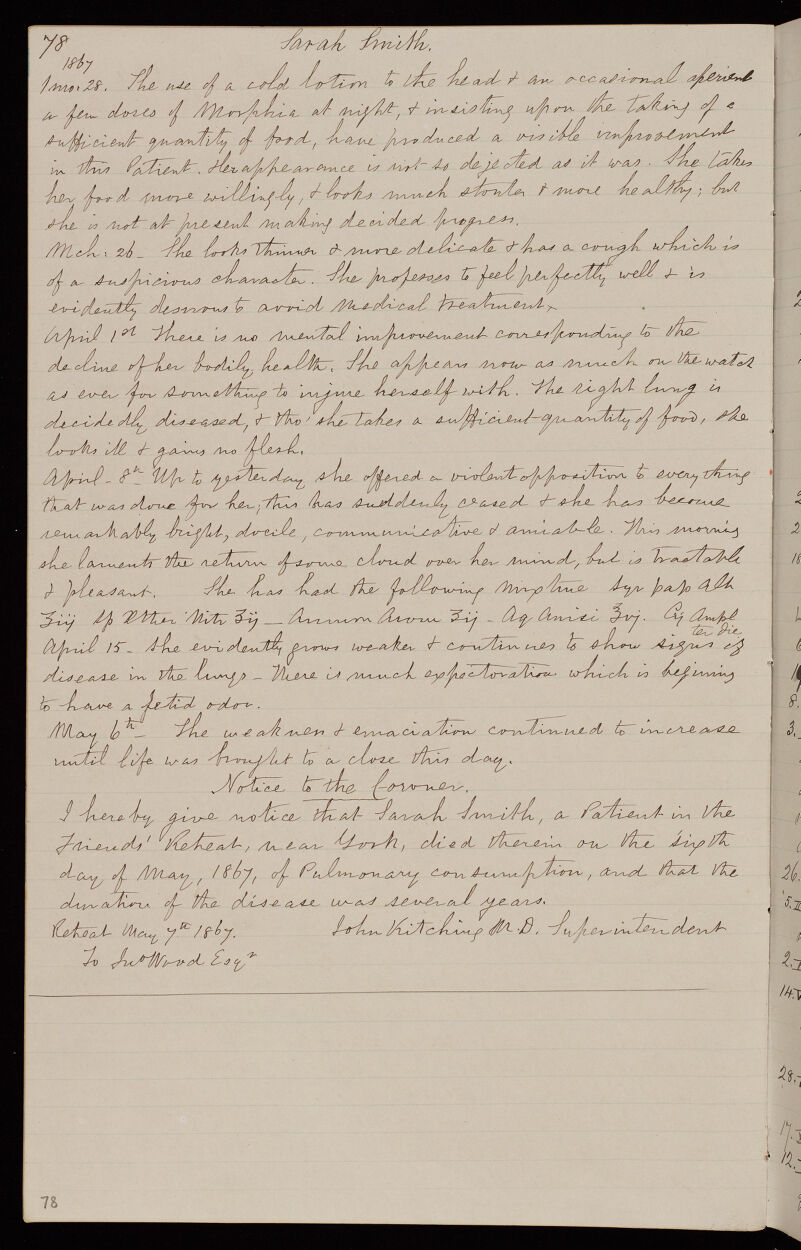 78 Sarah Smith.
1867
1 mo: 28. The use of a cold lotion to the head & an occasional aperient
a few doses of Morphia at night, & insisting upon the taking of a
sufficient quantity of food, have produced a visible improvement
in this Patient. Her appearance is not so dejected as it was. She takes
her food more willingly, & looks much stouter & more healthy; but
she is not at present making decided progress.
Mch: 26 - She looks thinner & more delicate & has a cough which is
of a suspicious character. She professes to feel perfectly well & is
evidently desirous to avoid medical treatment.
April 1st There is no mental improvement corresponding to the
decline of her bodily health. She appears now as much on the watch
as ever for something to injure herself with. The right lung is
decidedly diseased, & tho' she takes a sufficient quantity of food, she
looks ill & gains no flesh.
April - 8th Up to yesterday she offered a violent opposition to every thing
that was done for her; this has suddenly ceased & she has become
remarkably bright, docile, communicative & amiable. This morning
she laments the return of some cloud over her mind, but is tractable
& pleasant. She has had the following mixture Syr pap Alb
ʒiij Sp Ether Nitr ʒij - Ammon Arom ʒij - Aq Anisi ʒvj. Cij Ampl
ter die
April 15 - She evidently grows weaker & continues to show signs of
disease in the lungs - There is much expectoration which is begining
to have a fetid odor.
May 6th - The weakness & emaciation continued to increase
until life was brought to a close this day.
Notice to the Coroner.
I hereby give notice that Sarah Smith, a Patient in the
Friends' Retreat, near York, died therein on the sixth
day of May, 1867, of Pulmonary consumption, and that the
duration of the disease was several years.
Retreat May 7th 1867. John Kitching M.D. Superintendent
To Jno Wood Esqr
78